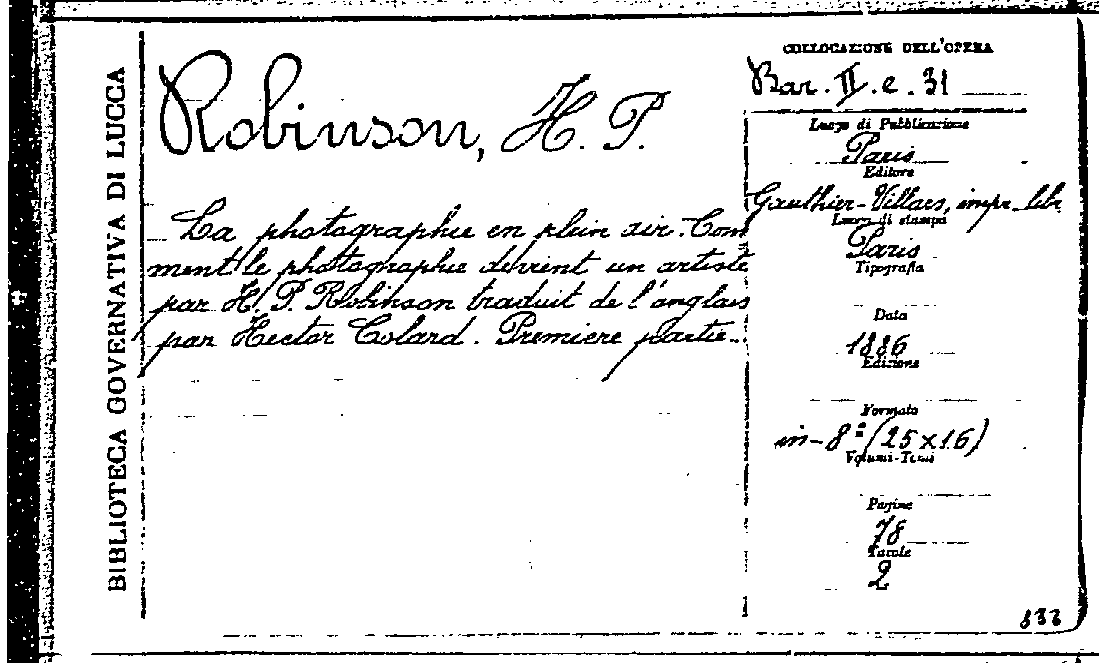 BIBLIOTECA GOVERNATIVA DI LUCCA
Robinson, H. P.
La photographie en plein air. Com
ment le photographe devient un artiste
par H. P. Robinson traduit de l'anglais
par Hector Colard. Premiere partie...
COLLOCAZIONE DELL'OPERA
Bar. II. e. 31
Luogo di Pubblicazione
Paris
Editore
Gauthier-Villars, impr. libr
Luogo di stampa
Paris
Tipografia
Data
1886
Edizione
Formato
in-8º (25 x 16)
Volumi-Tomi
Pagine
78
Tavole
2